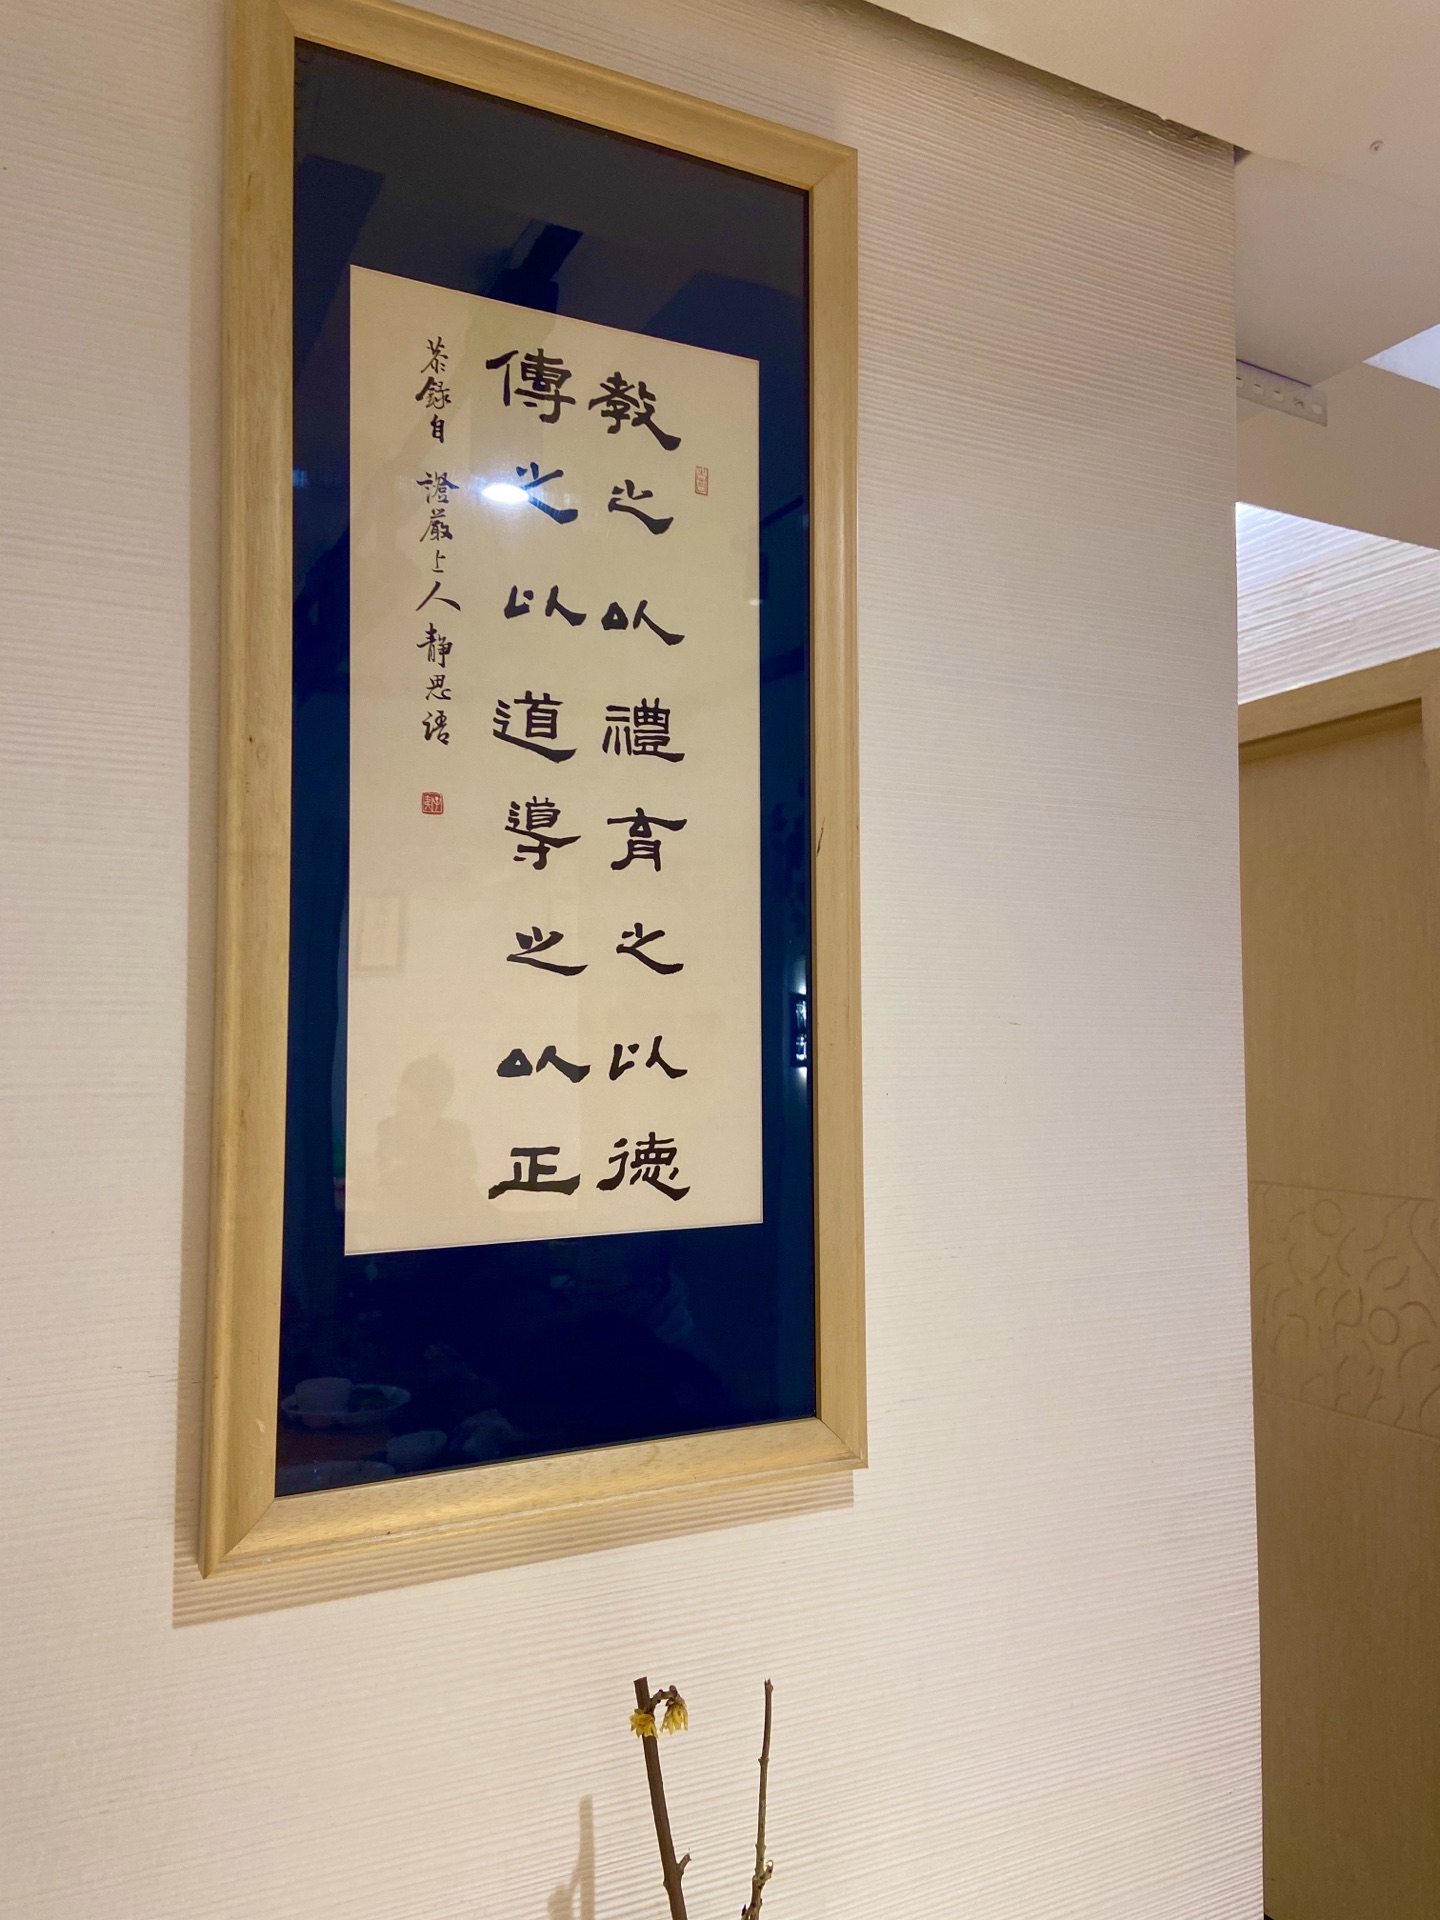 教之以禮育之以德
傳之以道導之以正
恭錄自 證嚴上人靜思語